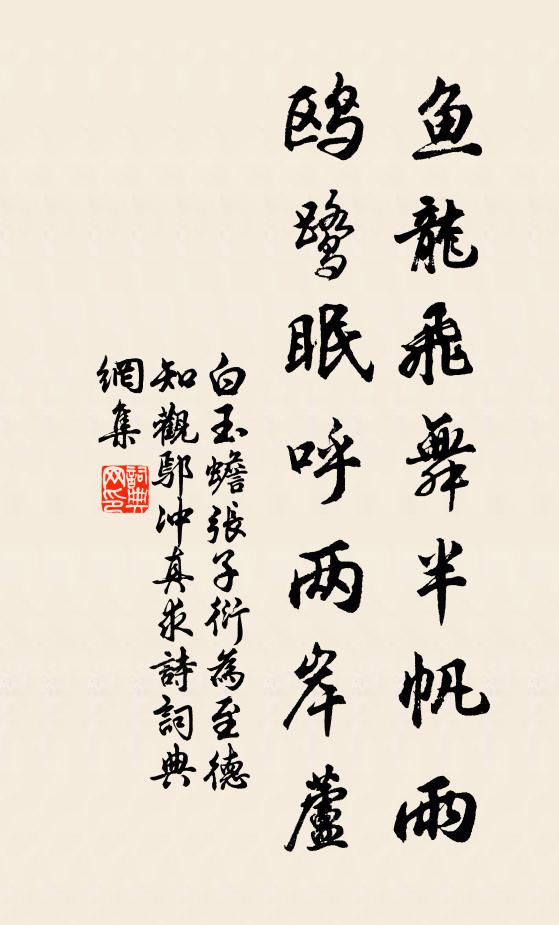 鱼龍飛舞半帆雨
鸥鷺眠呼两岸蘆
白玉蟾張子衍為至德
知觀鄢冲真求詩詞典
網集
詞典網印